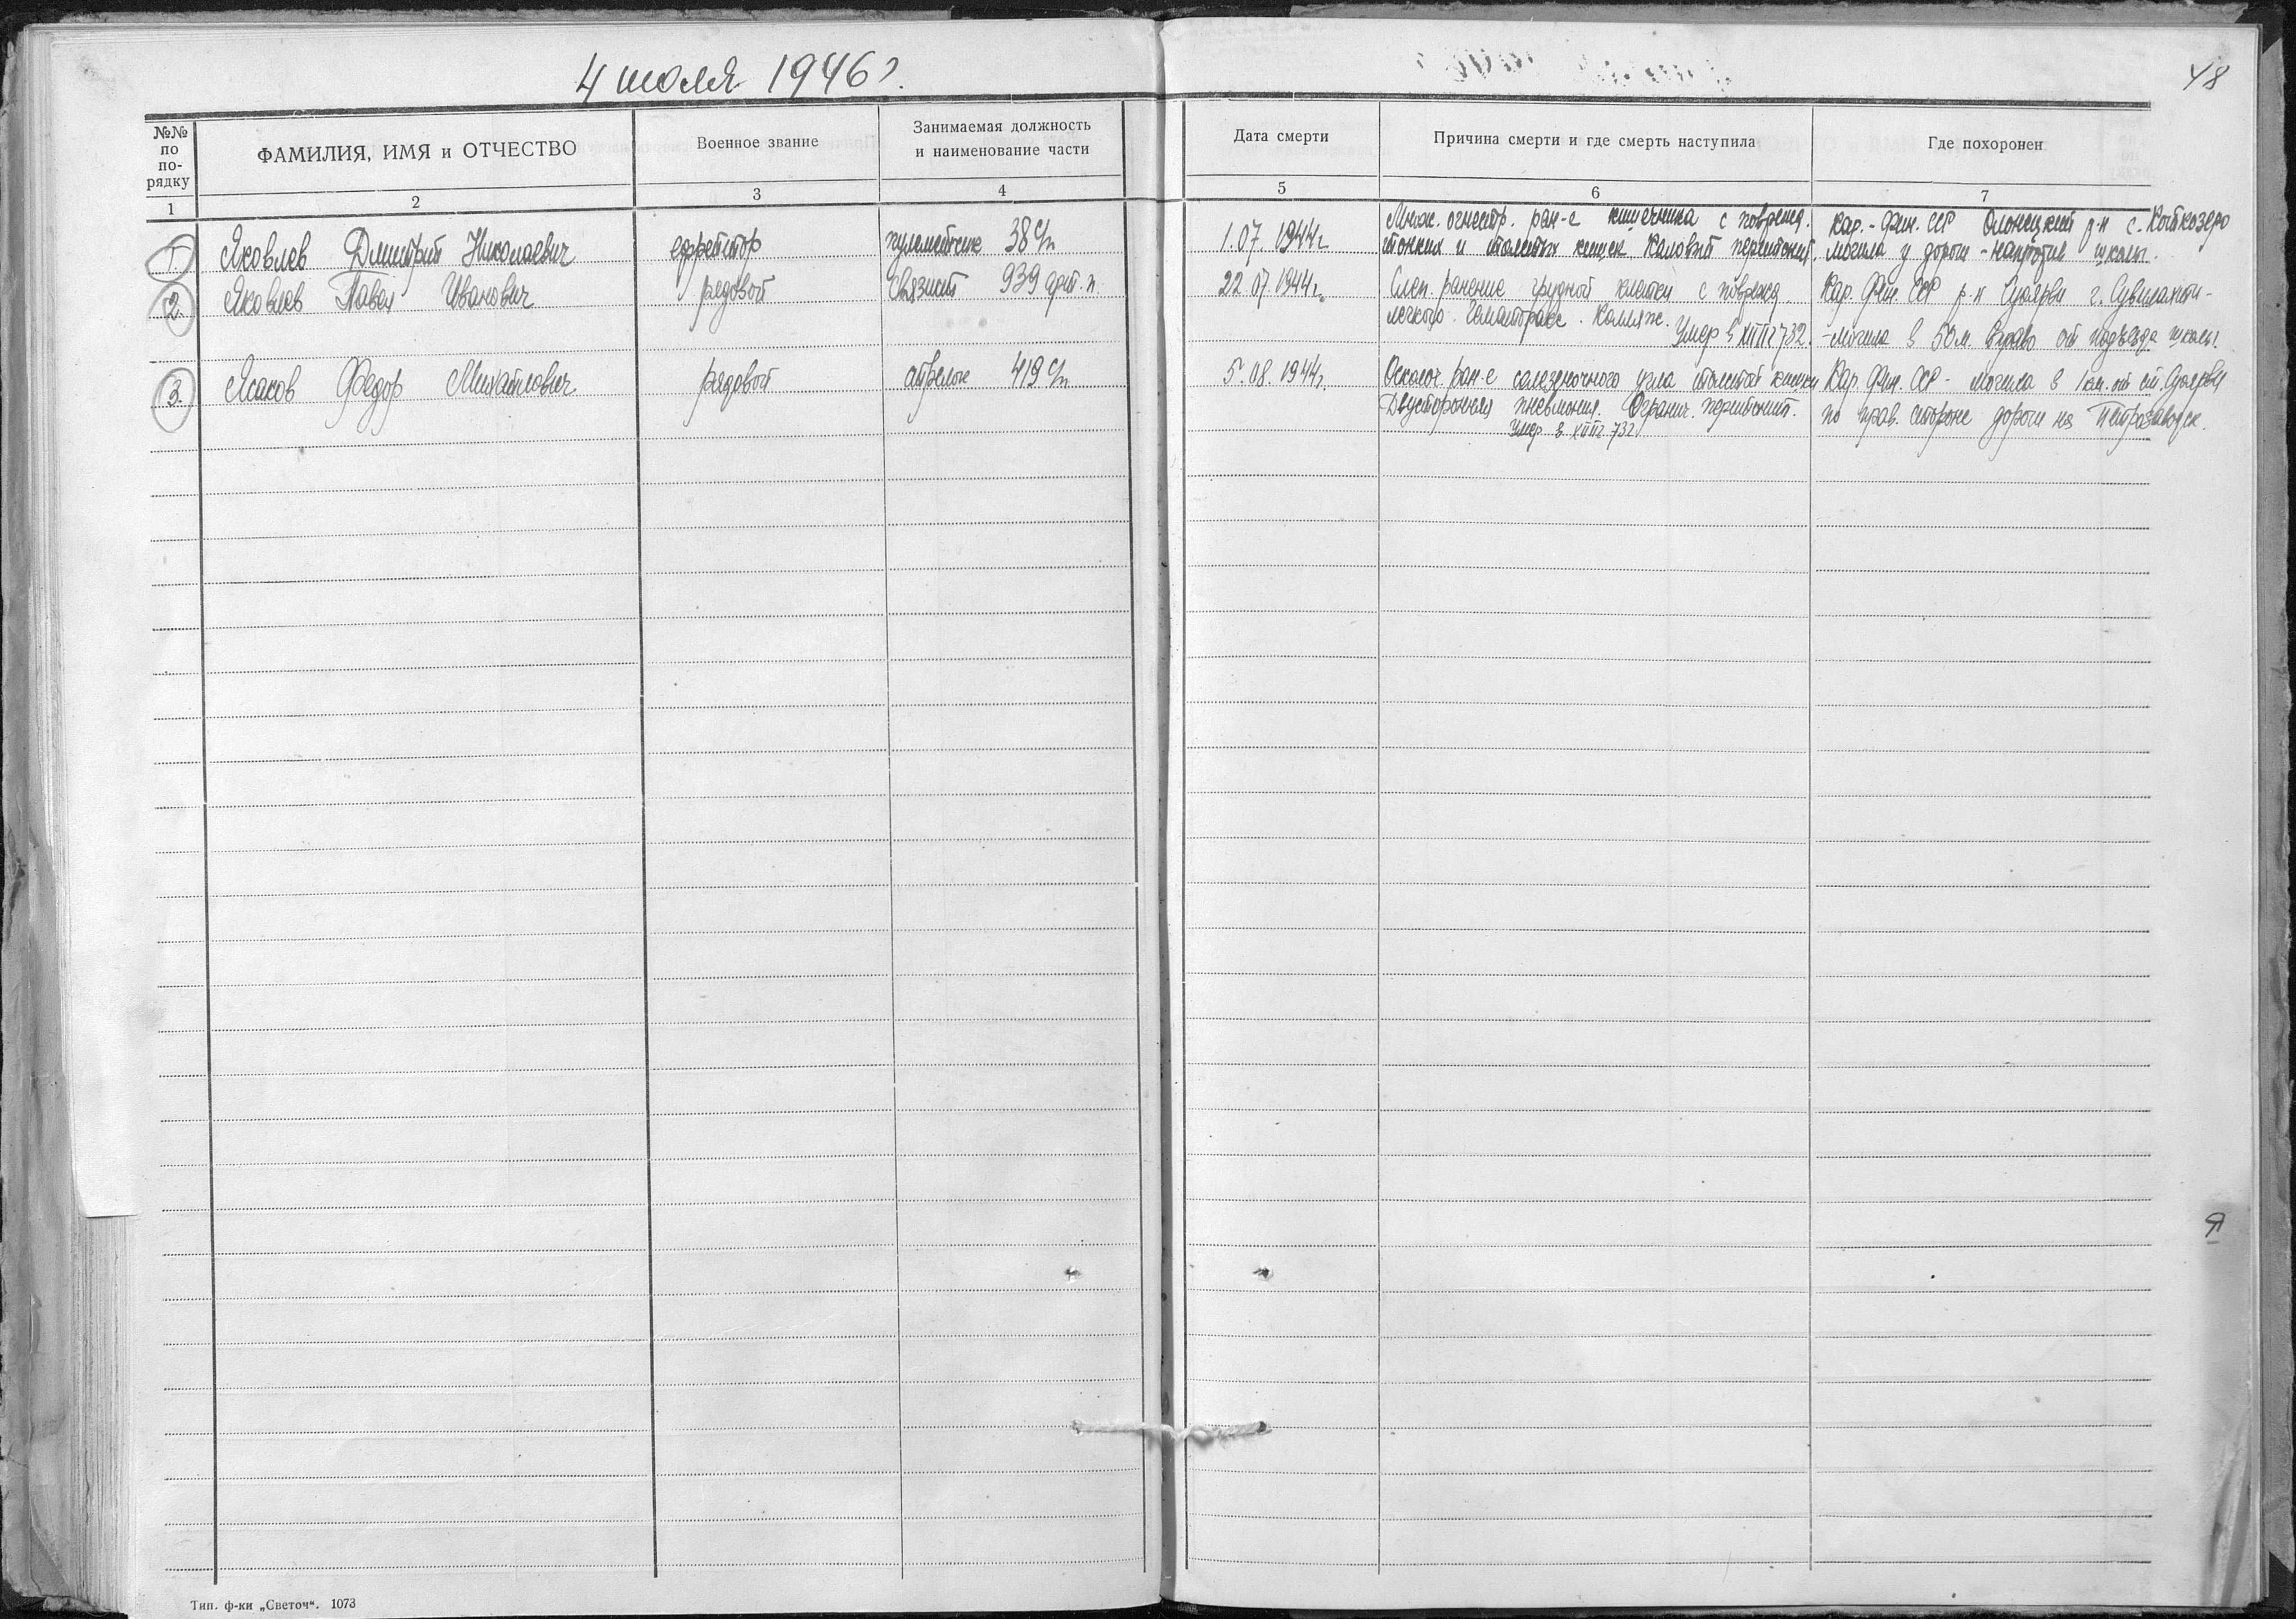 4 июля 1946 г.
48
№№ по по-рядку
ФАМИЛИЯ, ИМЯ и ОТЧЕСТВО
Военное звание
Занимаемая должность и наименование части
Дата смерти
Причина смерти и где смерть наступила
Где похоронен
1 2 3 4 5 6 7
1. Яковлев Дмитрий Николаевич ефрейтор пулеметчик 38 с/п 1.07.1944 г.
Множ. огнестр. ран-е кишечника с поврежд.
тонких и толстых кишек. Каловый перитонит.
Кар.-Фин. ССР Олонецкий р-н с. Коткозеро
могила у дороги - напротив школы.
2. Яковлев Павел Иванович рядовой связист 939 арт. п. 22.07.1944 г.
Слеп. ранение грудной клетки с поврежд.
легкого. Гемоторакс. Коллапс.
Умер в ХППГ 732.
Кар. Фин. ССР р-н Суоярви г.
- могила в 50 м. вправо от подъезда школы.
3. Ясаков Федор Михайлович рядовой стрелок 419 с/п 5.08.1944 г.
Осколоч. ран-е селезеночного угла толстой кишки
Двусторонняя пневмония. Огранич. перитонит.
Умер в ХППГ 732
Кар. Фин. ССР - могила в 1 км. от ст. Суоярви
по прав. стороне дороги на Петрозаводск.
Я
Тип. ф-ки „Светоч“. 1073